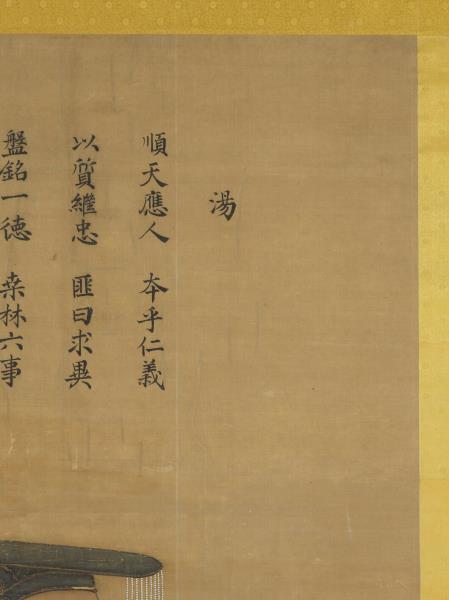 湯
順天應人 本乎仁義
以質繼忠 匪曰求異
盤銘一德 桒林六事